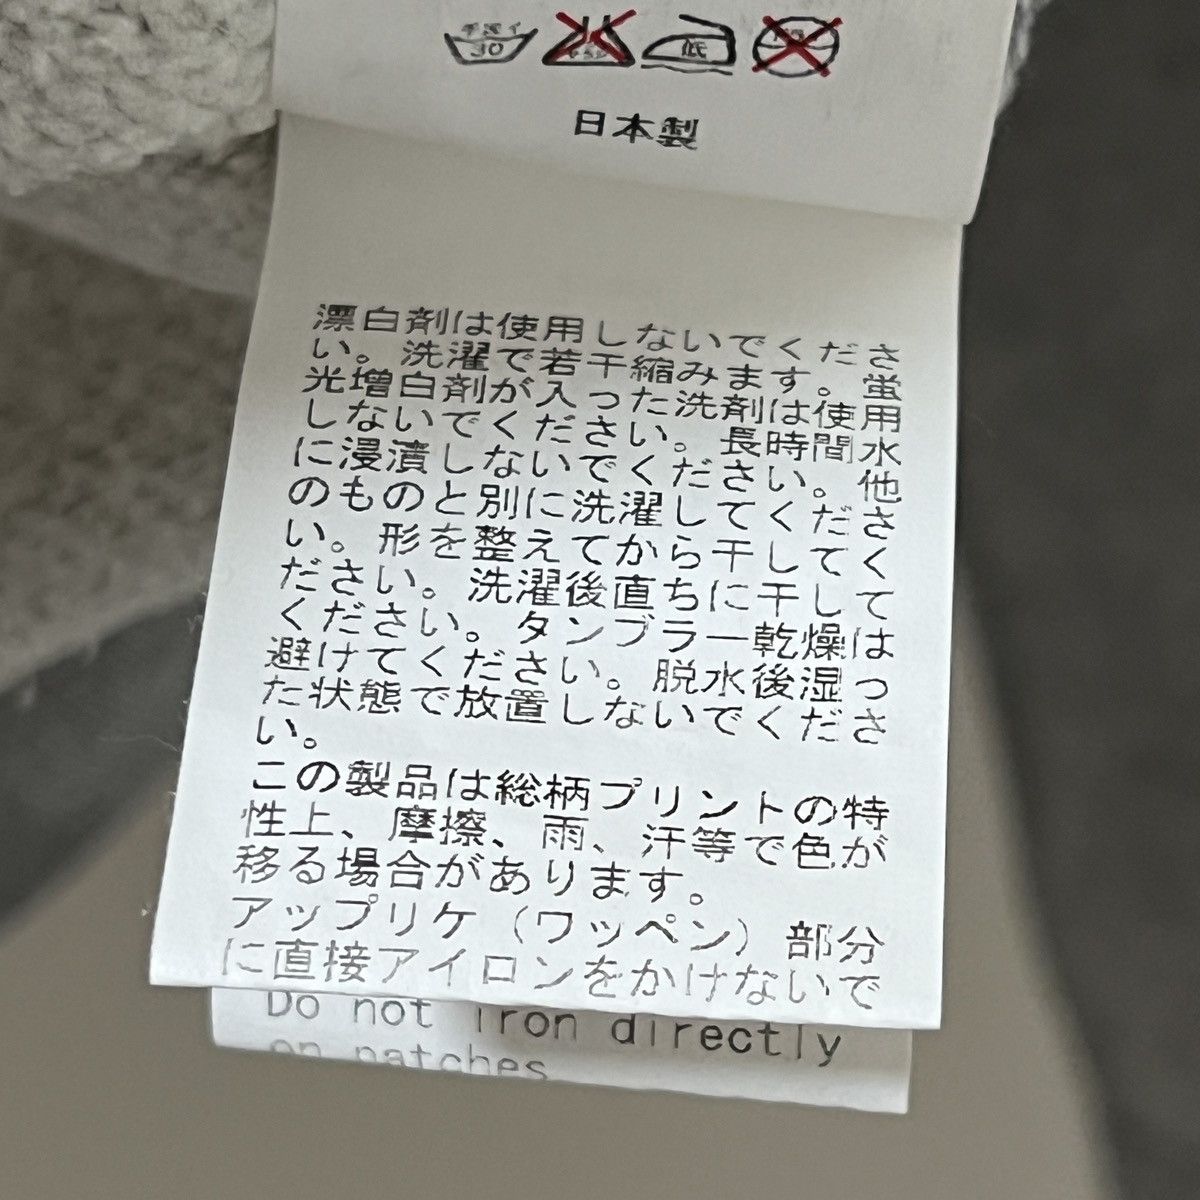 手洗イ
30
低
日本製
漂白剤は使用しないでくださ
い。洗濯で若干縮みます。蛍
光増白剤が入った洗剤は使用
しないでください。長時間水
に浸漬しないでください。他
のものと別に洗濯してくださ
い。形を整えてから干してく
ださい。洗濯後直ちに干して
ください。タンブラー乾燥は
避けてください。脱水後湿っ
た状態で放置しないでくださ
い。
この製品は総柄プリントの特
性上、摩擦、雨、汗等で色が
移る場合があります。
アップリケ(ワッペン)部分
に直接アイロンをかけないで
Do not iron directly
on patches